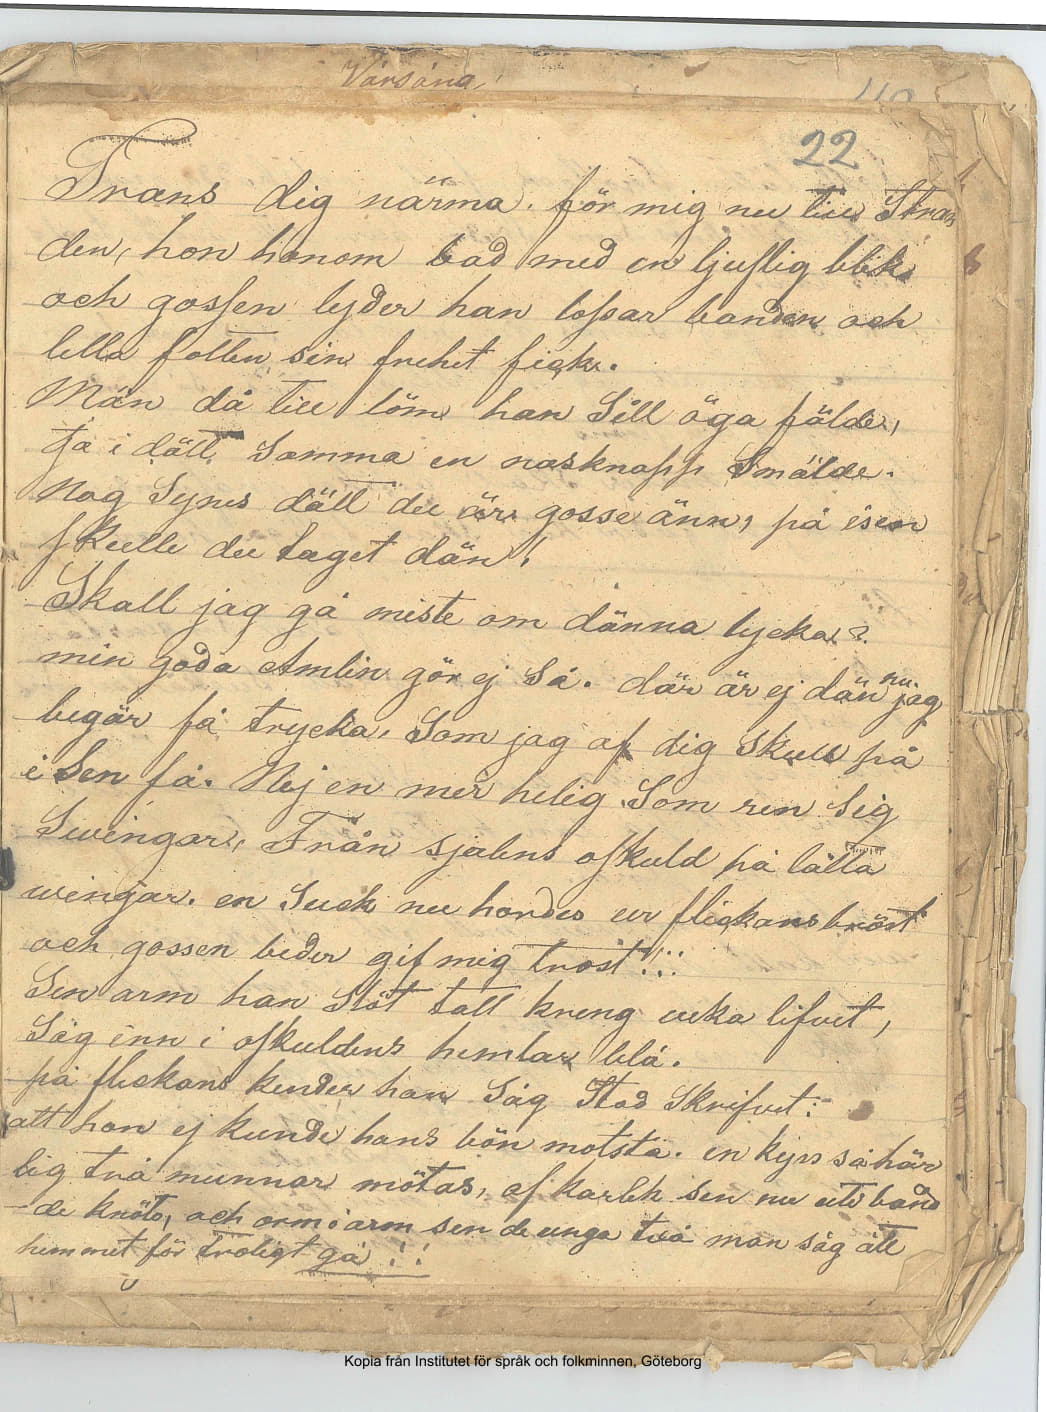 Vårsång
110
22
Frans dig närma. för mig nu till Stran
den, hon honom bad med en ljuflig blik
och gossen lyder han lossar banden och
lilla foten sin frihet fick.
Män då till löm han Sitt öga fälde,
ja i dätt samma en nasknäpp Smälde.
Nog Synes dätt du är gosse änn, på isen
skulle du taget dän!
Skall jag gå miste om dänna lycka?
min goda Amlin gör ej Så. där är ej dän nu jag
begär få trycka, Som jag af dig skull på
i Sen få. Nej en mer helig Som ren Sig
Svingar, Från själens oskuld på lätta
vingar. en Suck nu hördes ur flickans bröst
och gossen beder gif mig tröst!!!
Sen arm han Slöt tätt kring veka lifvet,
Såg inn i oskuldens himlar blå.
på flickans kinder han Såg Stod Skrifvet:
att hon ej kunde hans bön motstå. en kyss så här
lig två munnar mötas, af kärlek sen nu ett band
de knöto, och arm i arm sen de unga två man såg ått
hemmet för troligt gå!!
Kopia från Institutet för språk och folkminnen, Göteborg